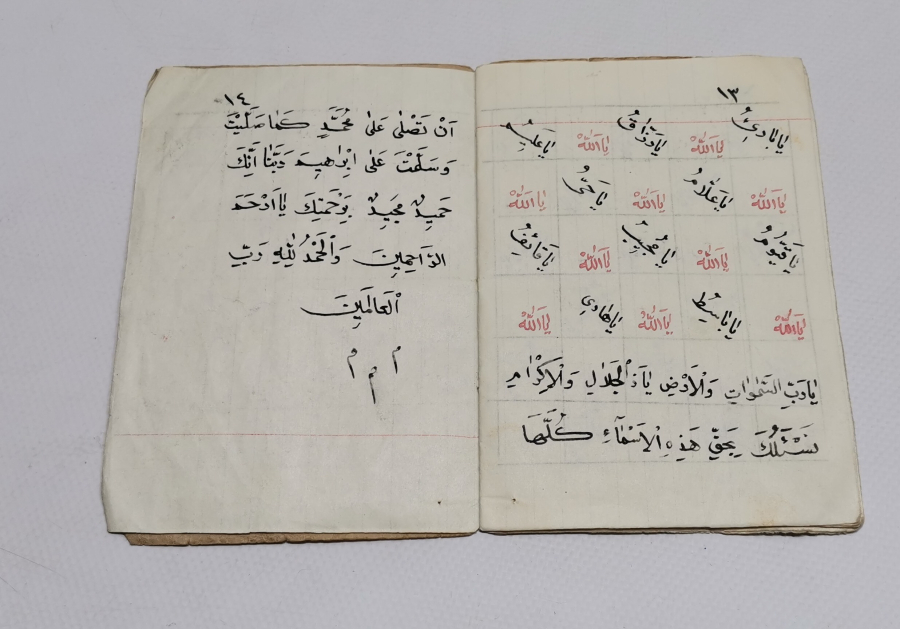 ١٣
يَا بَادِئُ يَا اَللّٰهُ يَا رَزَّاقُ يَا اَللّٰهُ يَا عَلِيمُ
يَا اَللّٰهُ يَا عَلَّامُ يَا اَللّٰهُ يَا حَيُّ يَا اَللّٰهُ
يَا قَيُّومُ يَا اَللّٰهُ يَا مُجِيبُ يَا اَللّٰهُ
يَا اَللّٰهُ يَا بَاسِطُ يَا اَللّٰهُ يَا هَادِي يَا اَللّٰهُ
يَا رَبَّ السَّمٰوَاتِ وَالْاَرْضِ يَا ذَالْجَلَالِ وَالْاِكْرَامِ
نَسْئَلُكَ بِحَقِّ هَذِهِ الْاَسْمَآءِ كُلِّهَا
١٤
اَنْ تُصَلِّىَ عَلٰى مُحَمَّدٍ كَمَا صَلَّيْتَ
وَسَلَّمْتَ عَلٰى اِبْرَاهِيمَ رَبَّنَا اِنَّكَ
حَمِيدٌ مَجِيدٌ بِرَحْمَتِكَ يَا اَرْحَمَ
الرَّاحِمِينَ وَالْحَمْدُ لِلّٰهِ رَبِّ
الْعَالَمِينَ
م م م